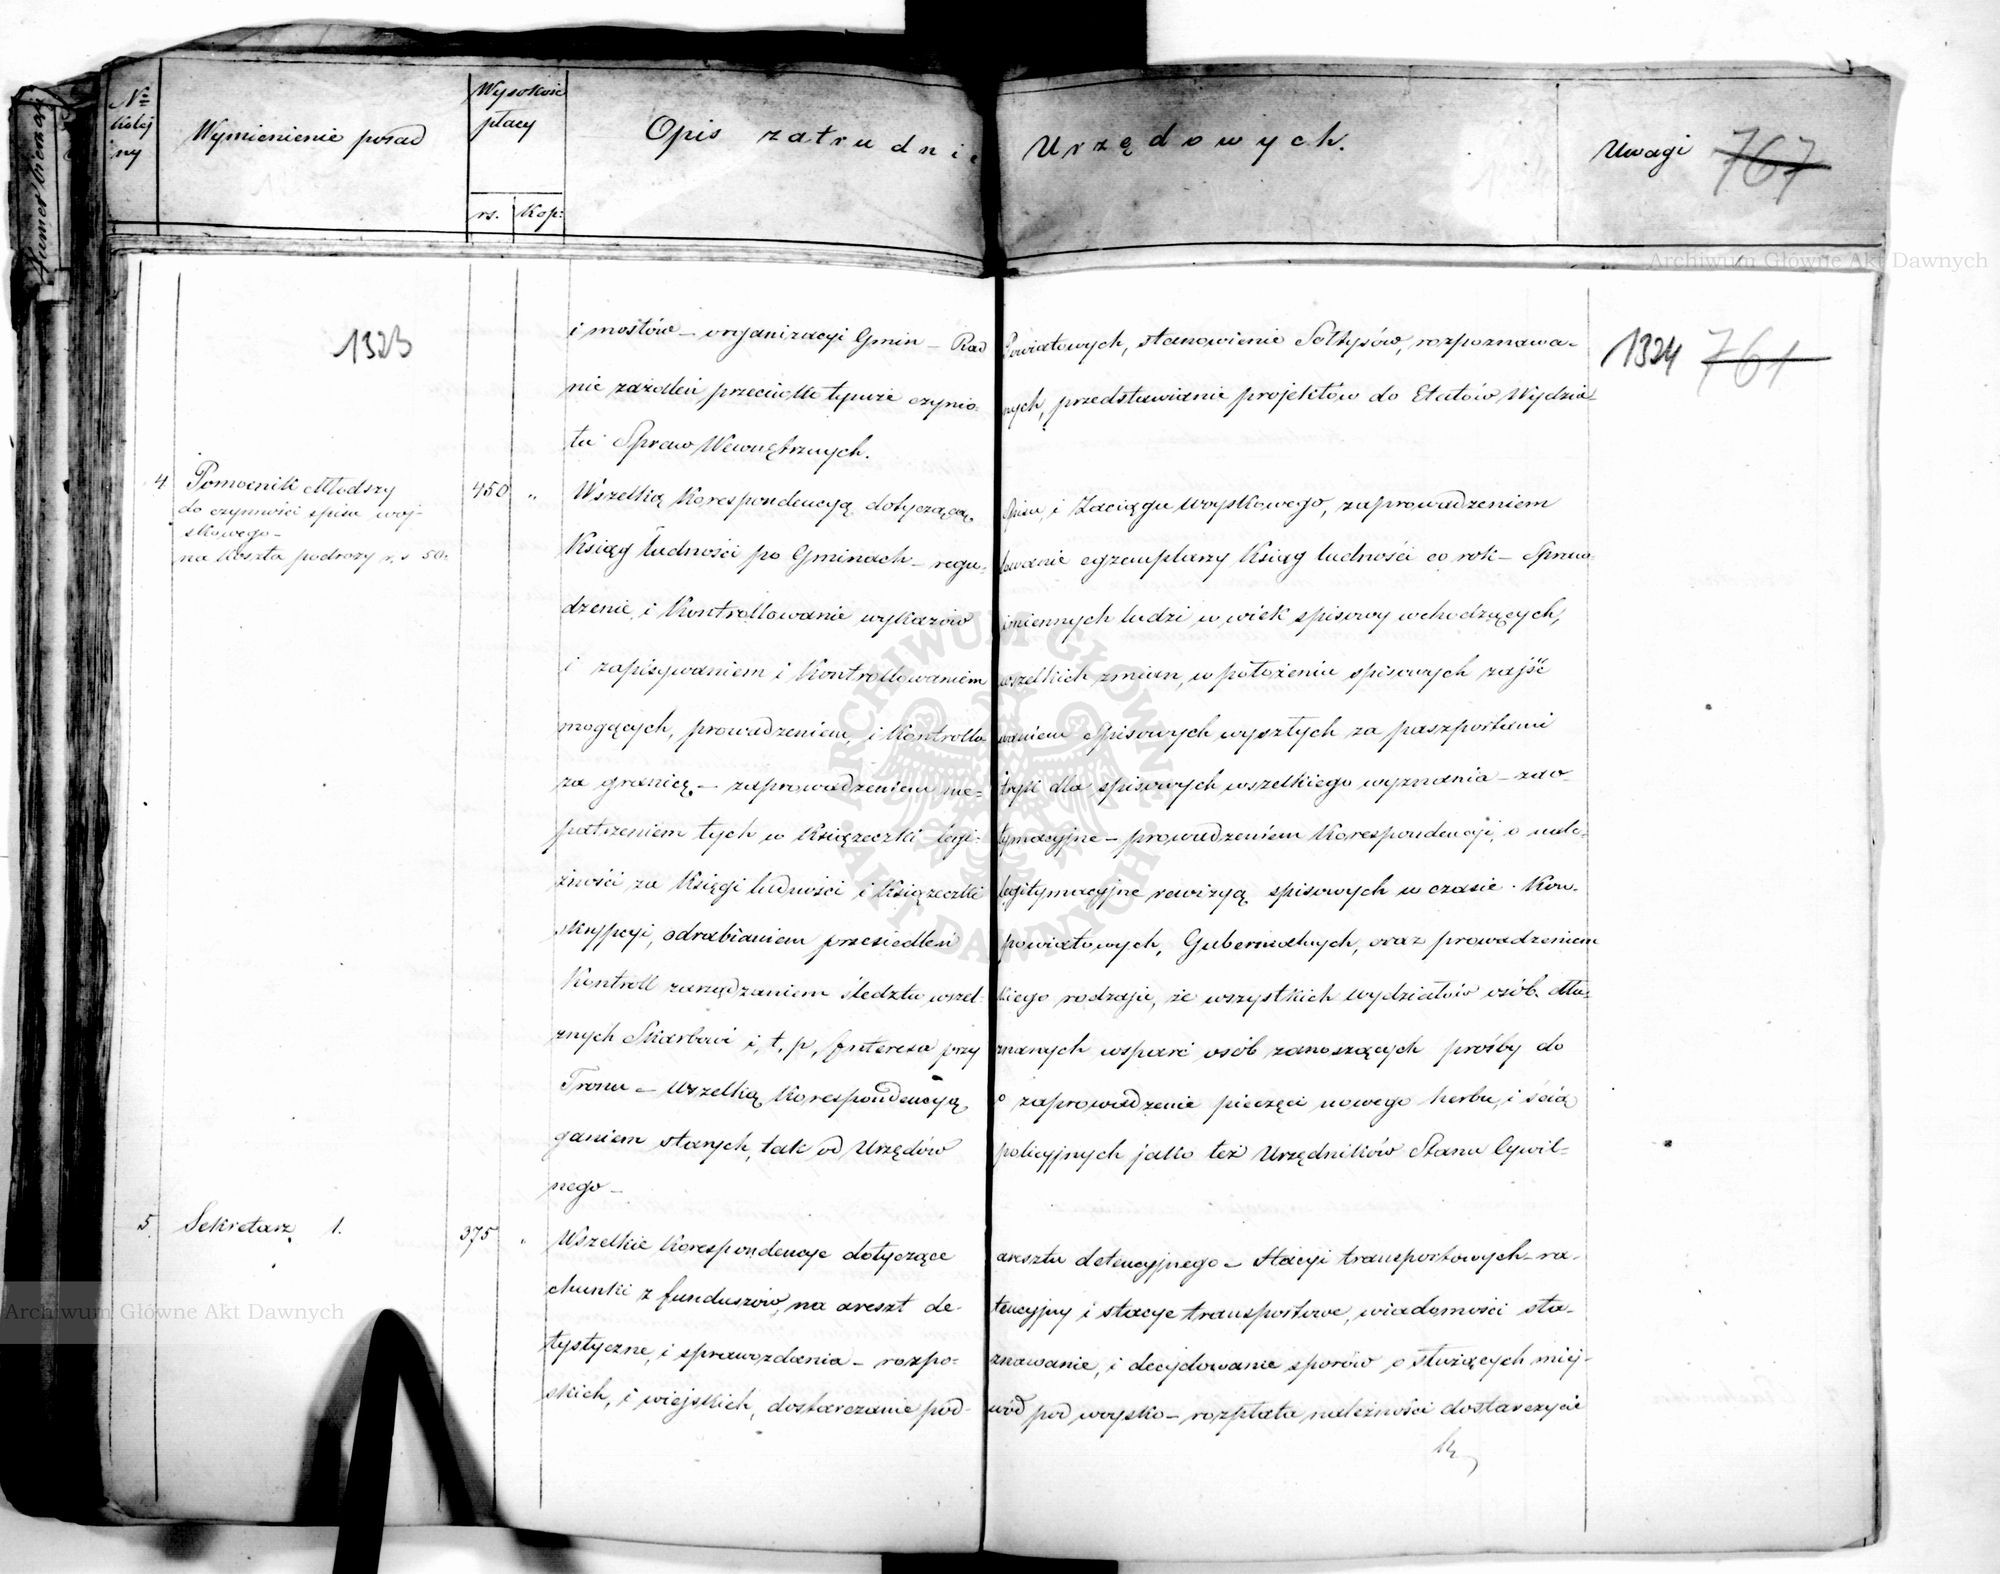 Nº kolejny
Wymienienie posad
Wysokość płacy
rs. Kop:
Opis zatrudnie Urzędowych.
Uwagi 767
Numer bieżący
Archiwum Główne Akt Dawnych
1323
1324 761
i mostów – organizacyi Gmin – Rad Powiatowych, stanowienie Sołtysów, rozpoznawa-
nie zażaleń przeciwko tymże czynio- nych, przedstawianie projektów do Etatów Wydzia-
łu Spraw Wewnętrznych.
4 Pomocnik Młodszy
do czynności spisu woj-
skowego –
na koszta podroży r.s 50.
450 „
Wszelką Korespondencyą dotyczącą Spisu, i Zaciągu woyskowego, zaprowadzeniem
Ksiąg ludności po Gminach – regu- lowanie egzemplarzy Ksiąg ludności co rok – Spraw-
dzenie, i Kontrollowanie wykazów imiennych ludzi w wiek spisowy wchodzących,
i zapisywaniem i Kontrollowaniem wszelkich zmian, w położeniu spisowych zajść
mogących, prowadzeniem, i Kontrollo- waniem Spisowych wyszłych za paszportami
za granicę. – zaprowadzeniem me- tryk dla spisowych wszelkiego wyznania – zao-
patrzeniem tych w Książeczki legi- tymacyjne – prowadzeniem Korespondencyi, o nale-
żności za Księgi ludności i Książeczki legitymacyjne rewizyą spisowych w czasie Kon-
skrypcyi, odrabianiem przesiedleń powiatowych, Gubernialnych, oraz prowadzeniem
Kontroll zarządzaniem śledztw wszel- kiego rodzaju, ze wszystkich wydziałów osób dłu-
żnych Skarbowi i, t, p, Interesa przy znanych wsparć osób zanoszących prośby do
Tronu – Wszelką Korespondencyą o zaprowadzenie pieczęci nowego herbu, i ścią
ganiem starych, tak od Urzędów policyjnych jako też Urzędników Stanu Cywil-
nego –
5. Sekretarz 1.
375 „
Wszelkie Korespondencye dotyczące aresztu detencyjnego – Stacyi transportowych – ra-
chunki z funduszów, na areszt de- tencyjny i stacye transportowe, wiadomości sta-
tystyczne, i sprawozdania – rozpo- znawanie, i decydowanie sporów o służących miej-
skich, i wiejskich, dostarczanie pod- wód pod woysko – rozpłata należności dostarczycie
Archiwum Główne Akt Dawnych
ARCHIWUM GŁÓWNE AKT DAWNYCH